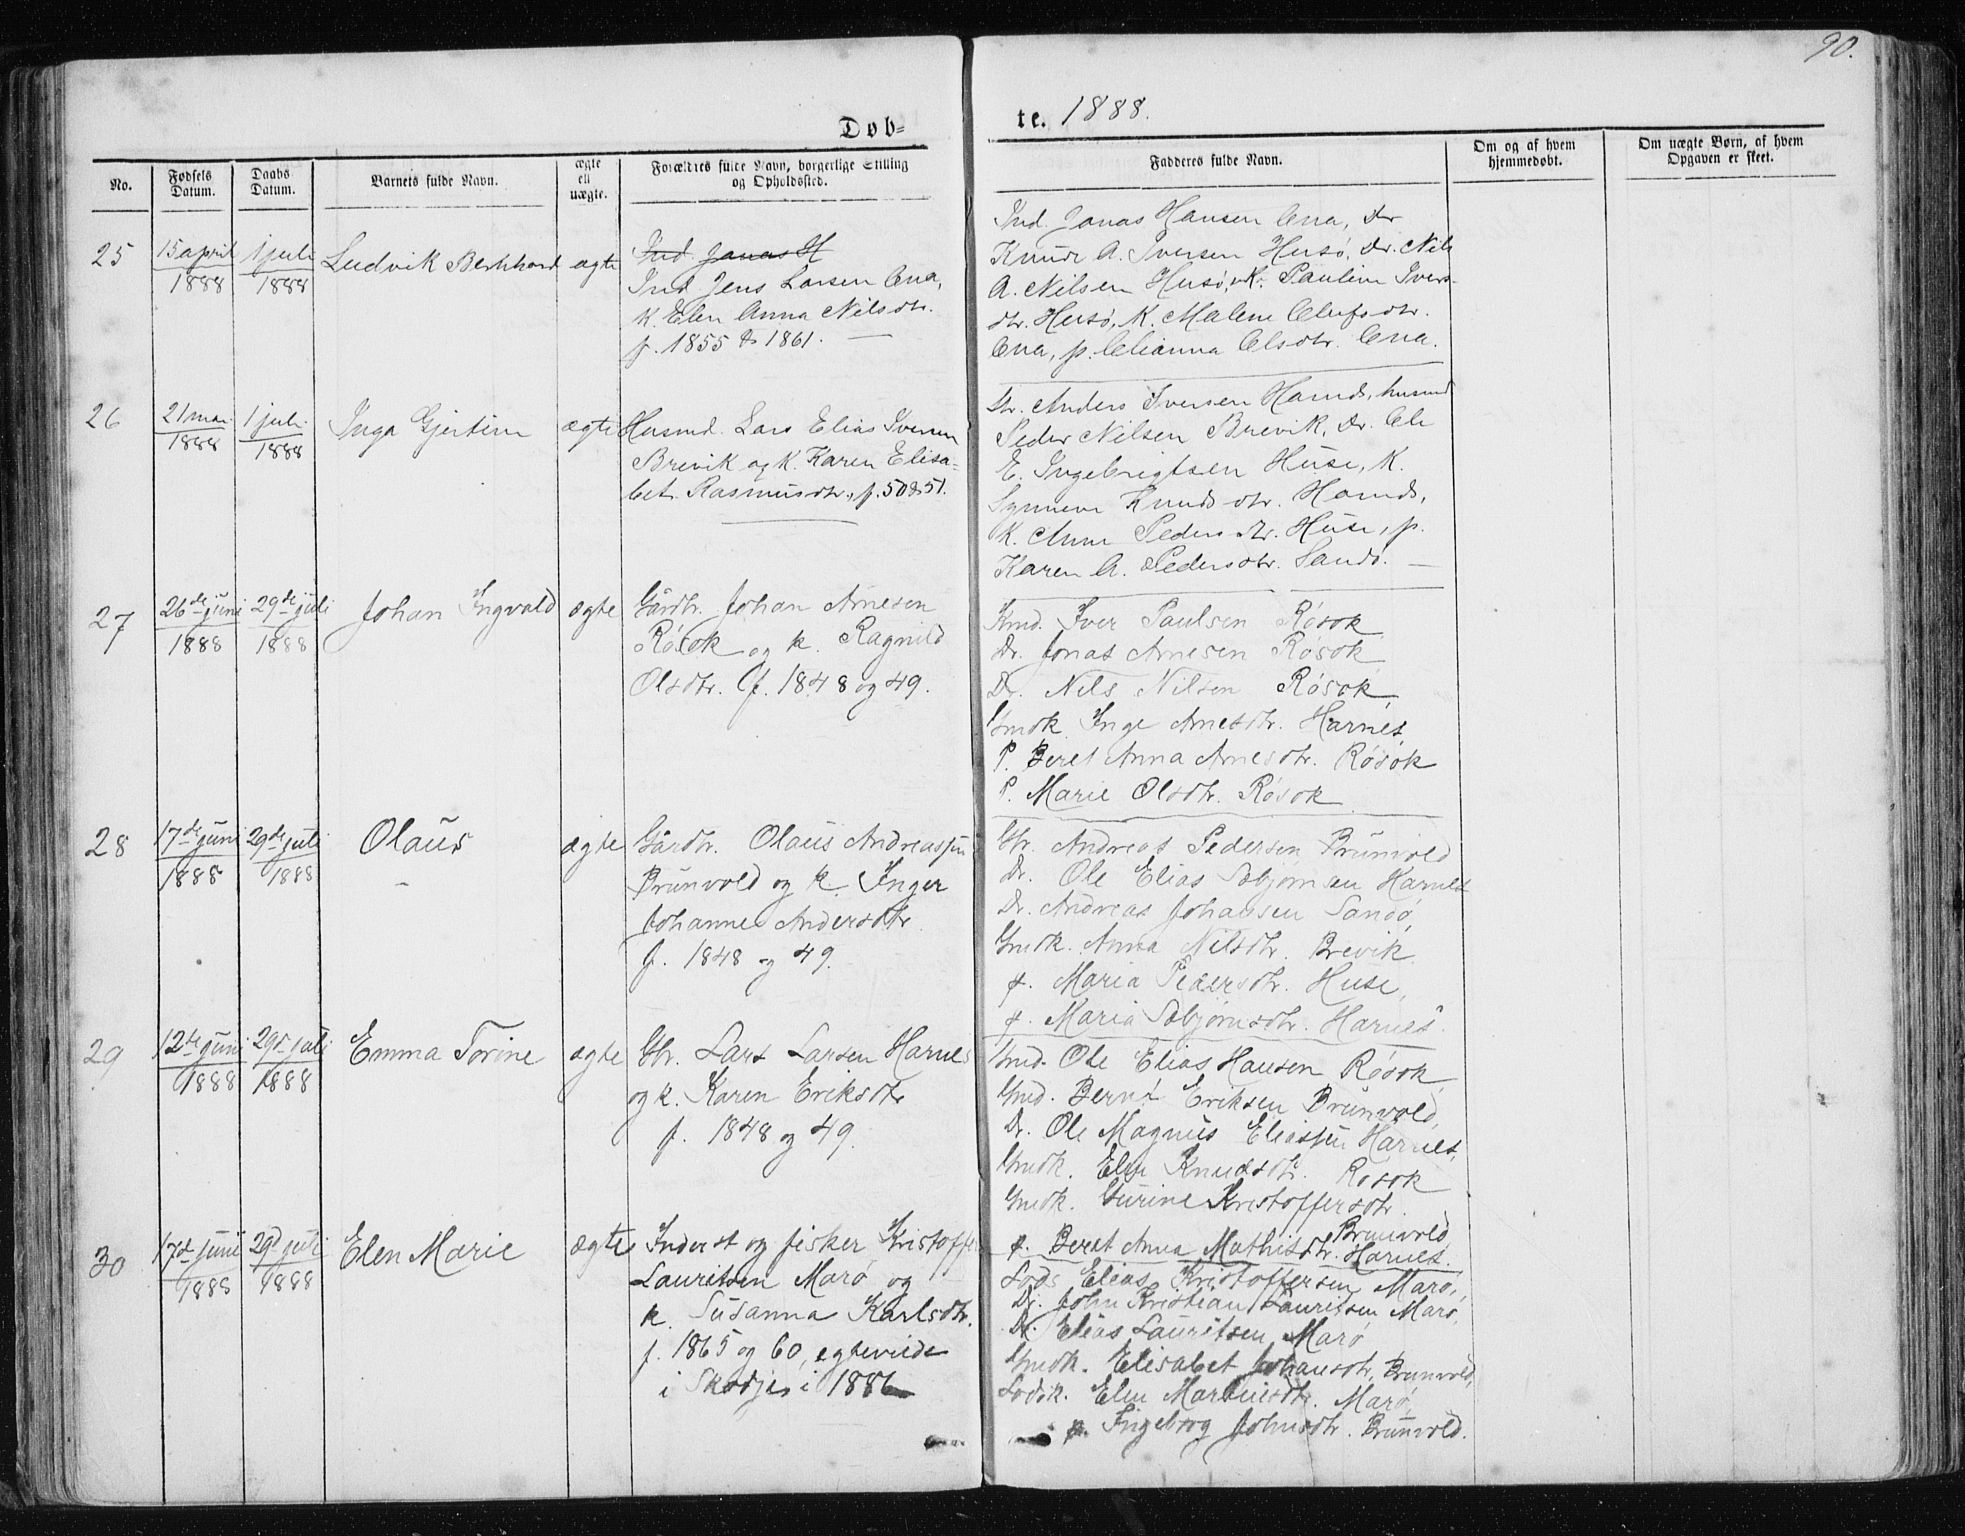 90.
Døb=
te. 1888.
No.
Fødsels Datum.
Daabs Datum.
Barnets fulde Navn.
ægte ell uægte.
Forældres fulde Navn, borgerlige Stilling og Opholdssted.
Fadderes fulde Navn.
Om og af hvem hjemmedøbt.
Om uægte Børn, af hvem Opgaven er skeet.
25
15 april 1888
1 juli 1888
Ludvik Bernhard
ægte
Ind. Jonas H
Ind. Jens Larsen Ona,
K. Elen Anna Nilsdtr.
f. 1855 & 1861.
Ind. Jonas Hansen Ona, Dr.
Knudt A. Iversen Husø, Dr. Nils
A. Nilsen Husø, K. Pauline Ivers-
dtr. Husø, K. Malene Olufsdtr.
Ona, p. Olianna Olsdtr. Ona.
26
21 mai 1888
1 juli 1888
Inga Gjertine
ægte
Husmd. Lars Elias Iversen
Brevik og K. Karen Elisa-
bet Rasmusdtr., f. 50 & 51.
Gbr. Anders Iversen Harnds, husmd
Peder Nilsen Brevik, Dr. Ole
E. Ingebrigtsen Huse, K.
Synneve Knudsdtr. Harnds,
K. Anne Pedersdtr. Huse, p.
Karen A. Pedersdtr. Sandø.
27
26de juni 1888
29de juli 1888
Johan Ingvald
ægte
Gårdbr. Johan Arnesen
Røsok og k. Ragnild
Olsdtr. f. 1848 og 49.
Gmd. Iver Paulsen Røsok
Dr. Jonas Arnesen Røsok
Dr. Nils Nilsen Røsok,
Gmdk. Inge Arnesdtr. Harnes,
P. Beret Anna Arnesdtr. Røsok
P. Marie Olsdtr. Røsok
28
17de juni 1888
29de juli 1888
Olaus
ægte
Gårdbr. Olaus Andreassen
Brunvold og k. Inger
Johanne Andersdtr.
f. 1848 og 49.
Gbr. Andreas Pedersen Brunvold
Dr. Ole Elias Asbjørnsen Harnes
Dr. Andreas Johansen Sandø,
Gmdk. Anna Nilsdtr. Brevik.
p. Maria Pedersdtr. Huse,
p. Maria Asbjørnsdtr. Harnes.
29
12te juni 1888
29d juli 1888
Emma Torine
ægte
Gbr. Lars Larsen Harnes
og k. Karen Eriksdtr
f. 1848 og 49.
Gmd. Ole Elias Hansen Røsok,
Gmd. Bernt Eriksen Brunvold,
Dr. Ole Magnus Eliassen Harnes,
Gmdk. Elen Knudsdtr. Røsok
Gmdk. Gurine Kristoffersdtr.
Brunvold,
p. Beret Anna Mathisdtr. Harnes.
30
17d juni 1888
29d juli 1888
Elen Marie
ægte
Inderst og fisker Kristoffer
Lauritsen Marø og
k. Susanna Karlsdtr.
f. 1865 og 60, egteviede
i Skodje i 1886
Lods Elias Kristoffersen Marø,
Dr. John Kristian Lauritsen Marø,
Dr. Elias Lauritsen Marø
Gmdk. Elisabet Johansdtr. Brunvold,
Lodsk. Elen Martinsdtr. Marø,
p. Ingebrog Johnsdtr. Brunvold.